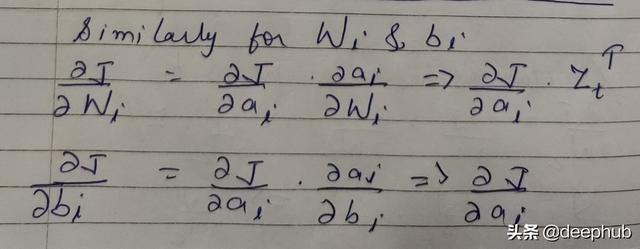 Similarly for Wᵢ & bᵢ
∂J/∂Wᵢ = ∂J/∂aᵢ · ∂aᵢ/∂Wᵢ => ∂J/∂aᵢ · Zₜᵀ
∂J/∂bᵢ = ∂J/∂aᵢ · ∂aᵢ/∂bᵢ => ∂J/∂aᵢ
头条 @deephub